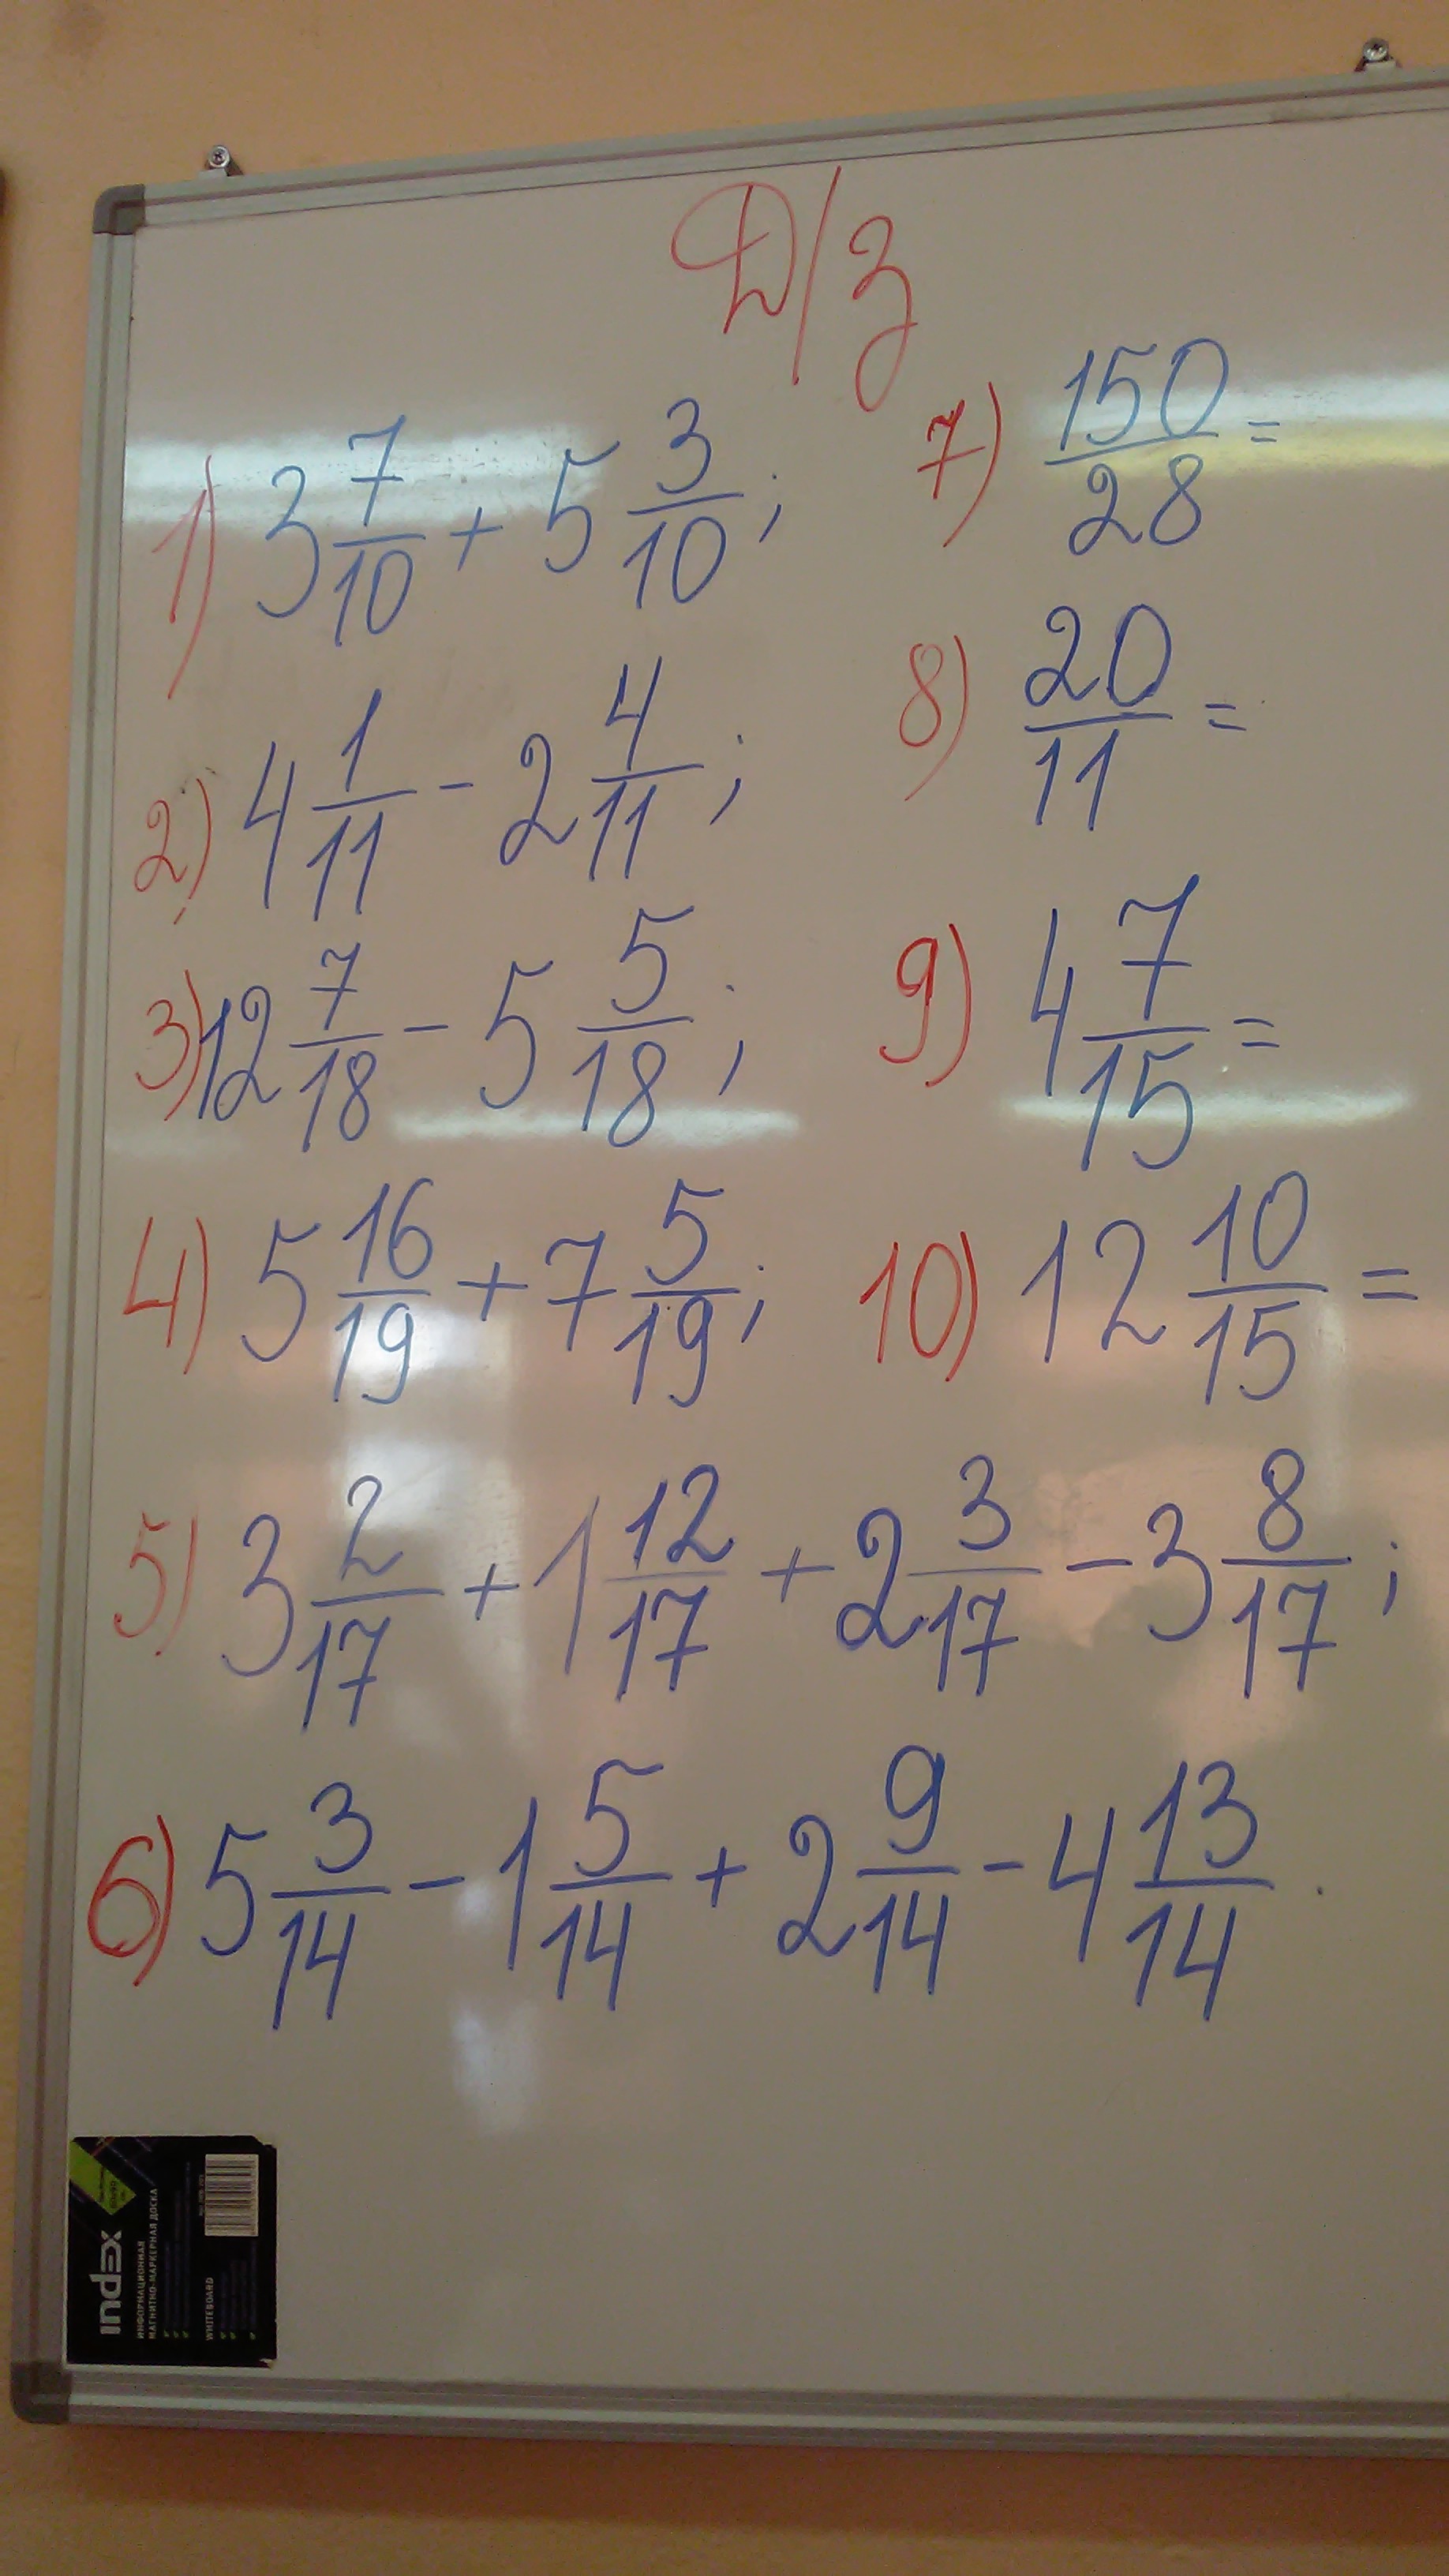 Д/з
1) 3 7/10 + 5 3/10;
2) 4 1/11 - 2 4/11;
3) 12 7/18 - 5 5/18;
4) 5 16/19 + 7 5/19;
5) 3 2/17 + 1 12/17 + 2 3/17 - 3 8/17;
6) 5 3/14 - 1 5/14 + 2 9/14 - 4 13/14.
7) 150/28 =
8) 20/11 =
9) 4 7/15 =
10) 12 10/15 =
index
ИНФОРМАЦИОННАЯ
МАГНИТНО-МАРКЕРНАЯ ДОСКА
WHITEBOARD